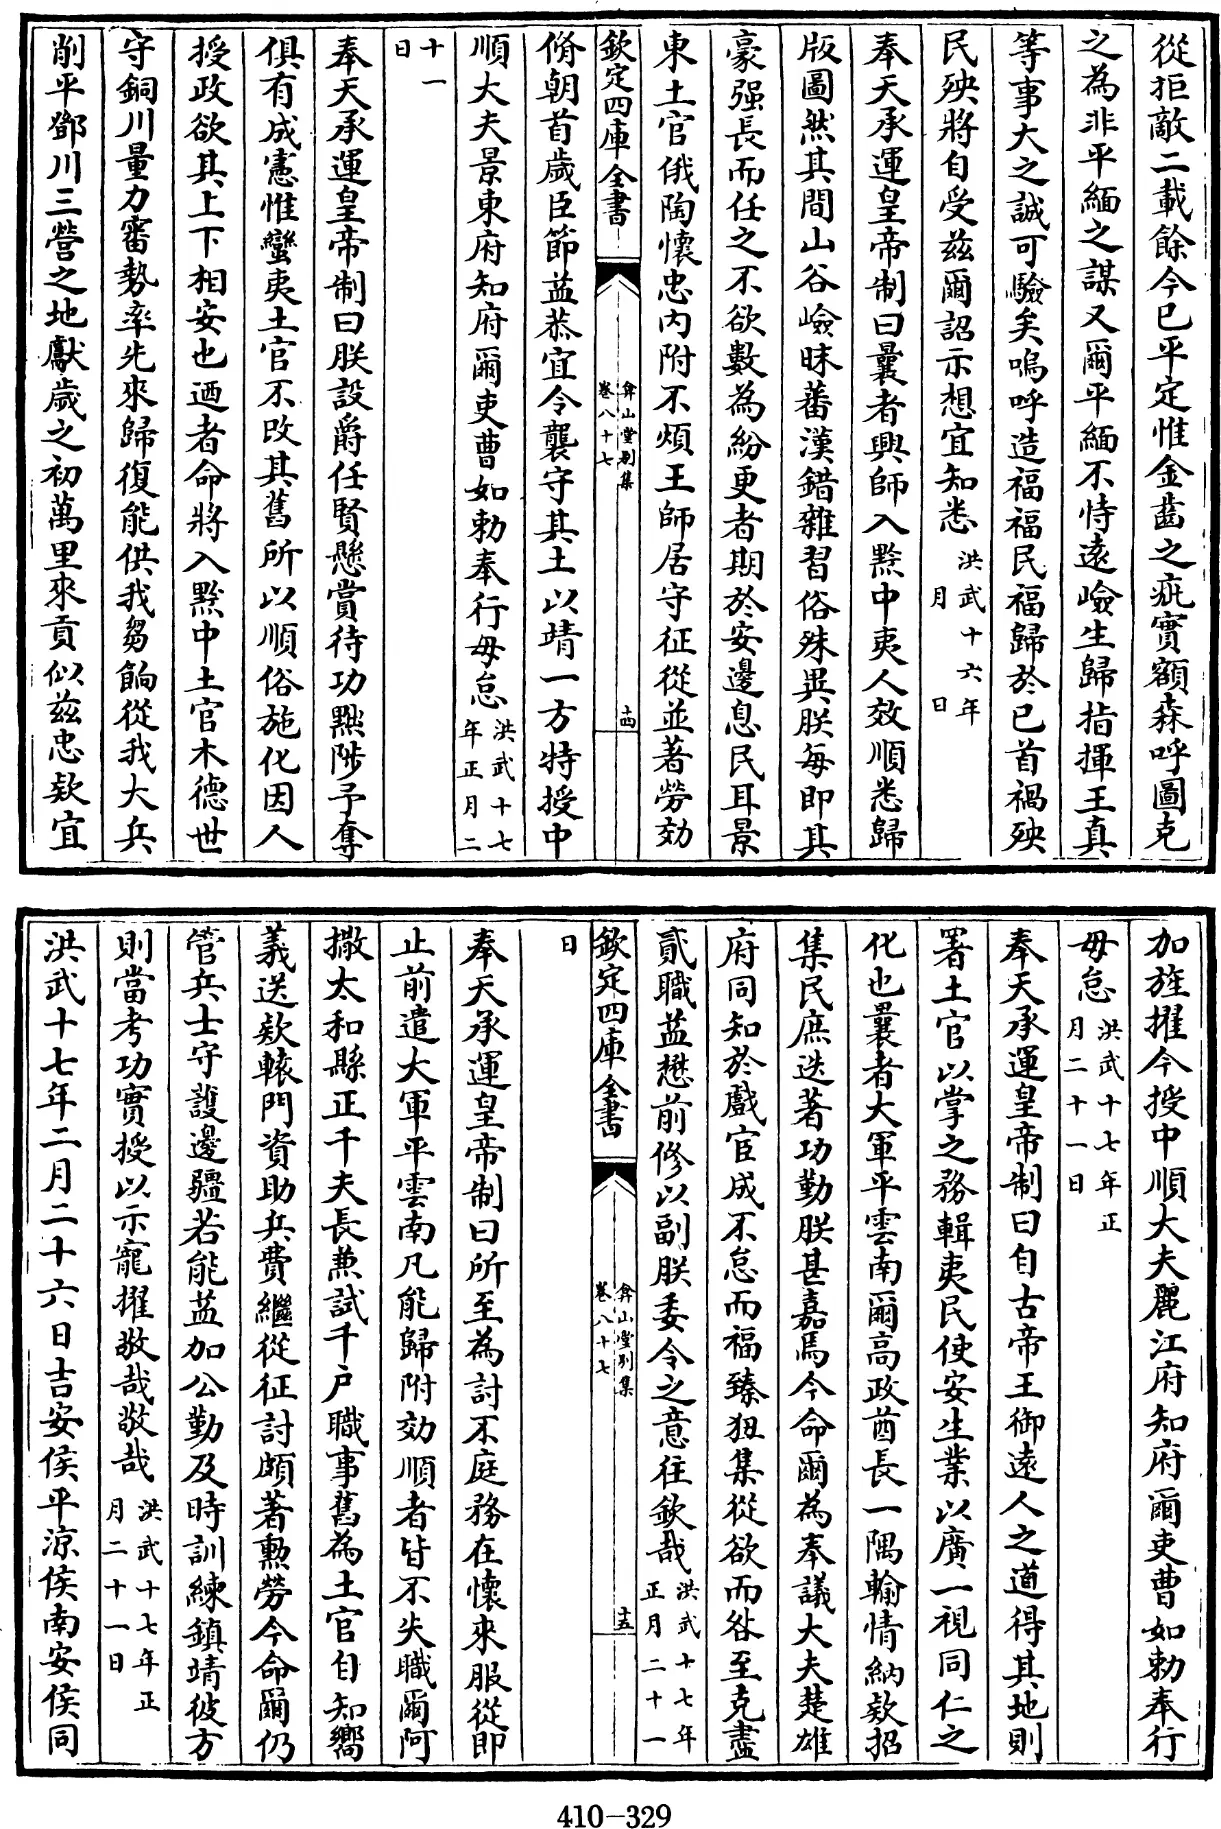 從拒敵二載餘今已平定惟金齒之疵實額森呼圖克
之為非平緬之謀又爾平緬不恃遠險生歸指揮王真
等事大之誠可驗矣嗚呼造福福民福歸於已首禍殃
民殃將自受茲爾詔示想宜知悉洪武十六年
月　日
奉天承運皇帝制曰曩者興師入黔中夷人效順悉歸
版圖然其間山谷嶮昧蕃漢錯雜習俗殊異朕每即其
豪强長而任之不欲數為紛更者期於安邊息民耳景
東土官俄陶懷忠内附不煩王師居守征從並著勞効
欽定四庫全書
弇山堂别集
卷八十七
十四
脩朝首歲臣節益恭宜令襲守其土以靖一方特授中
順大夫景東府知府爾吏曹如勅奉行毋怠洪武十七
年正月二
十一
日
奉天承運皇帝制曰朕設爵任賢懸賞待功黜陟予奪
俱有成憲惟蠻夷土官不改其舊所以順俗施化因人
授政欲其上下相安也迺者命將入黔中土官木德世
守銅川量力審勢率先來歸復能供我芻餉從我大兵
削平鄧川三營之地獻歲之初萬里來貢似茲忠欵宜
加旌擢今授中順大夫麗江府知府爾吏曹如勅奉行
毋怠洪武十七年正
月二十一日
奉天承運皇帝制曰自古帝王御遠人之道得其地則
署土官以掌之務輯夷民使安生業以廣一視同仁之
化也曩者大軍平雲南爾高政酋長一隅輸情納欵招
集民庶迭著功勤朕甚嘉焉今命爾為奉議大夫楚雄
府同知於戲官成不怠而福臻狃集從欲而咎至克盡
貳職益懋前修以副朕委令之意往欽哉洪武十七年
正月二十一
欽定四庫全書
弇山堂别集
卷八十七
十五
日
奉天承運皇帝制曰所至為討不庭務在懷來服從即
止前遣大軍平雲南凡能歸附効順者皆不失職爾阿
撒太和縣正千夫長兼試千戸職事舊為土官自知嚮
義送欵轅門資助兵費繼從征討頗著勲勞今命爾仍
管兵士守護邊疆若能益加公勤及時訓練鎮靖彼方
則當考功實授以示寵擢敬哉敬哉洪武十七年正
月二十一日
洪武十七年二月二十六日吉安侯平涼侯南安侯同
410-329